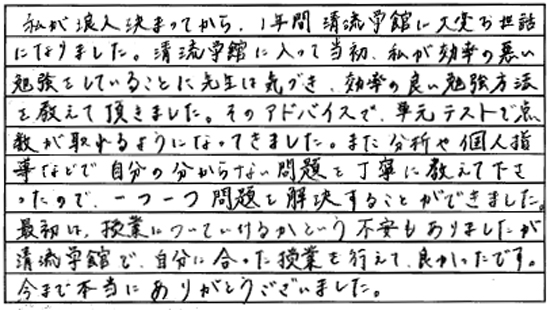 私が浪人決まってから、1年間清流学館に大変お世話
になりました。清流学館に入って当初、私が効率の悪い
勉強をしていることに先生は気づき、効率の良い勉強方法
を教えて頂きました。そのアドバイスで、単元テストで点
数が取れるようになってきました。また分析や個人指
導などで自分の分からない問題を丁寧に教えて下さ
ったので、一つ一つ問題を解決することができました。
最初は、授業についていけるかという不安もありましたが
清流学館で、自分に合った授業を行えて、良かったです。
今まで本当にありがとうございました。